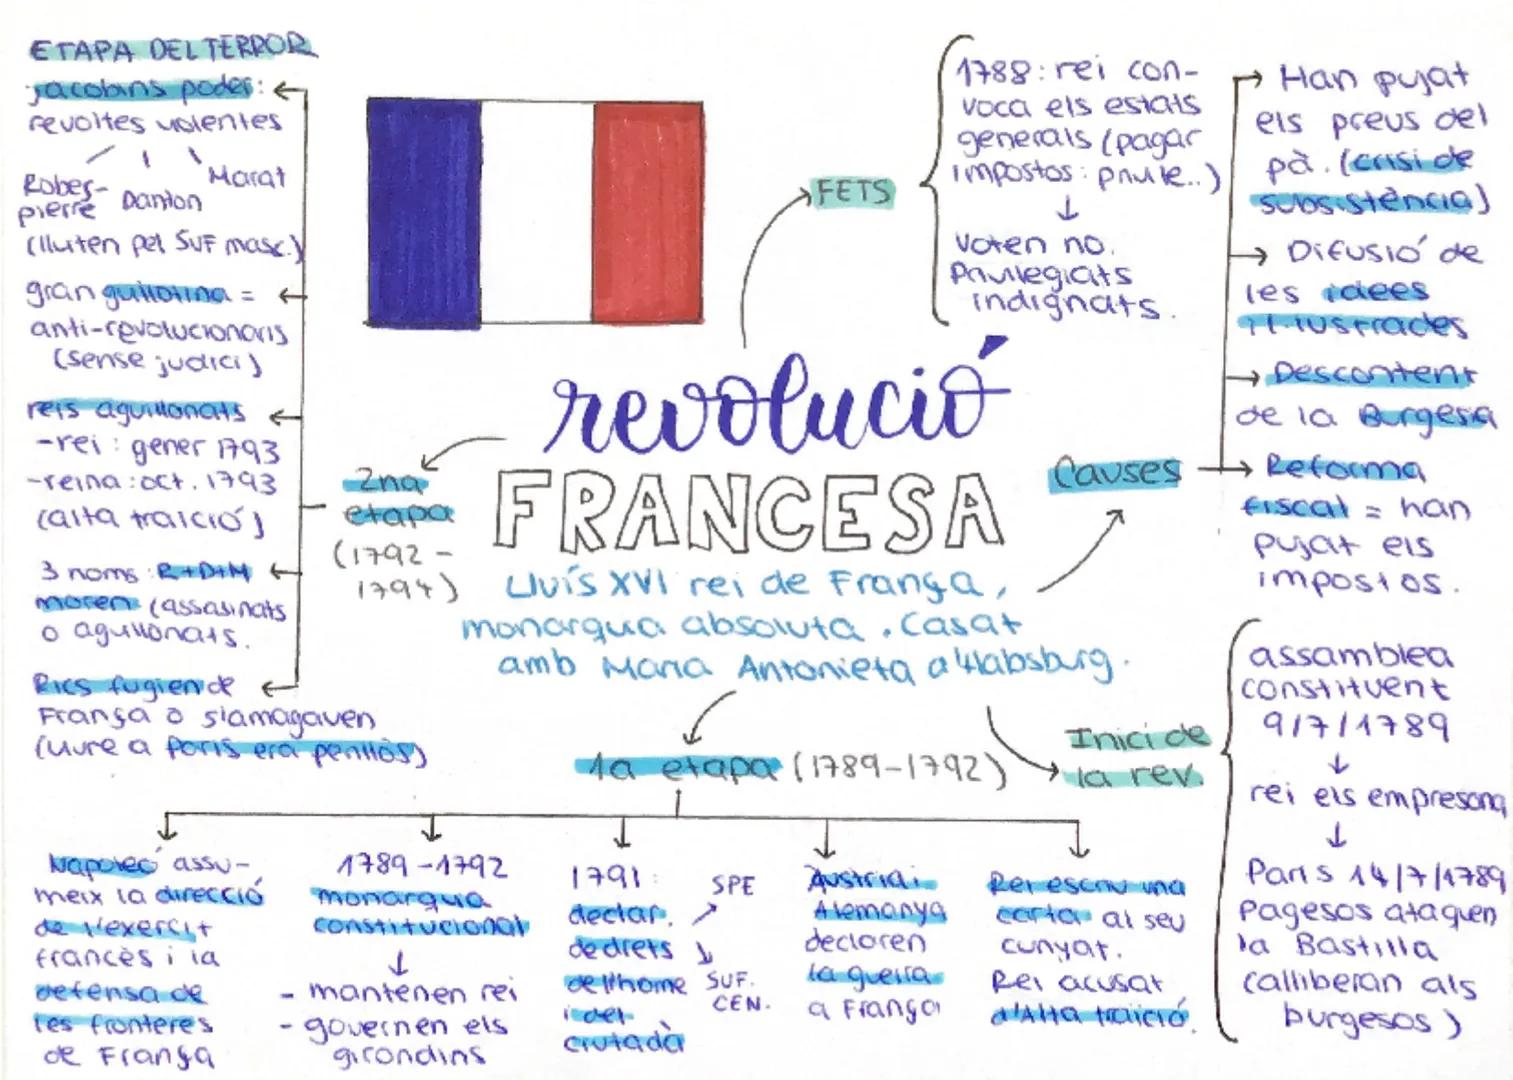 ETAPA DEL TERROR
jacobins poder:
revoltes violentes
Rober-
pierre
Danton
Marat
(lluten pel SUF masc.)
gran guillotina =
anti-revolucionaris
(sense judici)
reis aguillonats
-rei: gener 1793
-reina: oct. 1793
(alta traïció)
3 noms: R+D+M
moren (assasinats
o aguillonats.
Rics fugien de
França o s'amagaven
(viure a París era perillós)
2na
etapa
(1792-
1794)
FETS
1788: rei con-
voca els estats
generals (pagar
impostos: privile..)
↓
Voten no.
Privilegiats
indignats.
Han pujat
els preus del
pà. (crisi de
subsistència)
Difusió de
les idees
il·lustrades
Descontent
de la Burgesia
Reforma
fiscal = han
pujat els
impostos.
Causes
revolució
FRANCESA
Lluís XVI rei de França,
monarquia absoluta. Casat
amb Maria Antonieta d'Habsburg.
1a etapa (1789-1792)
Inici de
la rev.
assamblea
constituent
9/7/1789
↓
rei els empresona
↓
París 14/7/1789
Pagesos ataquen
la Bastilla
(alliberan als
burgesos)
Napoleó assu-
meix la direcció
de l'exèrcit
francès i la
defensa de
les fronteres
de França
1789-1792
monarquia
constitucional
↓
- mantenen rei
- governen els
girondins
1791:
declar.
de drets
de l'home
i del
ciutadà
SPE
SUF.
CEN.
Austria i
Alemanya
declaren
la guerra
a França
Rei escriu una
carta al seu
cunyat.
Rei acusat
d'Alta traició.